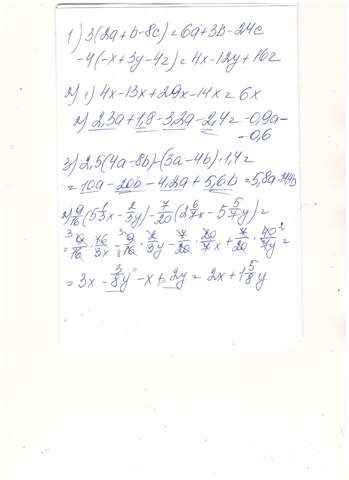 1) 3(2a+b-8c)=6a+3b-24c
-4(-x+3y-4z)=4x-12y+16z
2) 1) 4x-13x+29x-14x=6x
2) 2,3a+1,8-3,2a-2,4=-0,9a-
-0,6
3) 2,5(4a-8b)-(3a-4b)·1,4=
=10a-20b-4,2a+5,6b=5,8a-14,4b
2) 9/16(5 1/3x-2/3y)-7/20(2 6/7x-5 5/7y)=
=9/16·16/3x-9/16·2/3y-7/20·20/7x+7/20·40/7y=
=3x-3/8y-x+2y=2x+1 5/8y